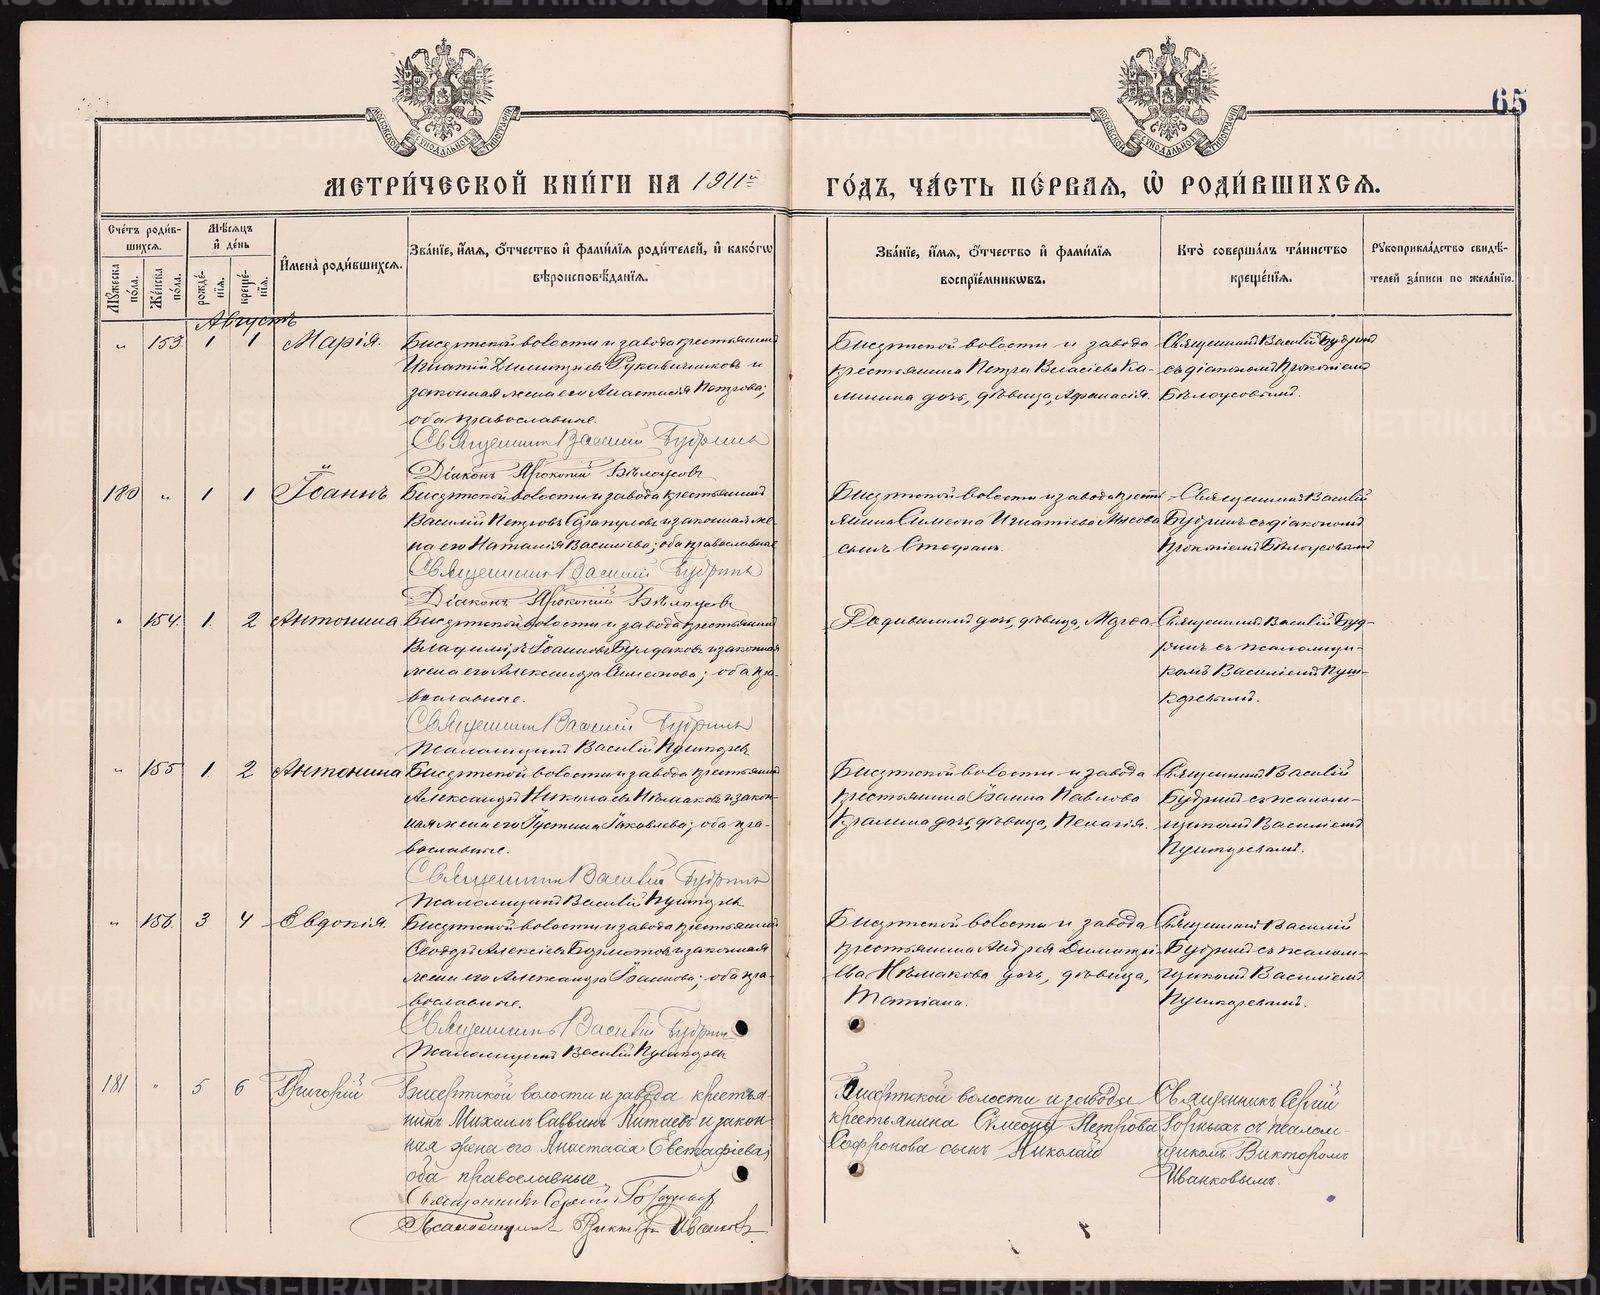 65
МЕТРИ́ЧЕСКОЙ КНИ́ГИ НА 1911й ГО́ДЪ, ЧА́СТЬ ПЕ́РВАЯ, Ѡ҆ РОДИ́ВШИХСЯ.
Сче́тъ роди́в-
шихся.
Мѣ́сяцъ
и҆ де́нь
Мꙋжеска по́ла.
Же́нска по́ла.
рожде́-
нїя.
креще́-
нїя.
И҆мена̀ роди́вшихся.
Зва́нїе, и҆́мя, ѻ҆́тчество и҆ фами́лїя роди́телей, и҆ како́гѡ
вѣроисповѣ́данїя.
Зва́нїе, и҆́мя, ѻ҆́тчество и҆ фами́лїя
воспрїе́мникѡвъ.
Кто̀ соверша́лъ та́инство
креще́нїя.
Рꙋкоприкла́дство свидѣ́-
телей за́писи по жела́нїю.
Августъ
„ 153. 1 1 Марія.
Бисертской волости и завода крестьянинъ
Игнатій Димитріевъ Рукавичниковъ и
законная жена его Анастасія Петрова;
оба православные.
Священникъ Василій Будринъ
Діаконъ Прокопій Бѣлоусовъ
Бисертской волости и завода
крестьянина Петра Власіева Ка-
мшина дочь, дѣвица, Афанасія.
Священникъ Василій Будринъ
съ діакономъ Прокопіемъ
Бѣлоусовымъ.
180 „ 1 1 Іоаннъ
Бисертской волости и завода крестьянинъ
Василій Петровъ Сарапуловъ и законная же-
на его Наталія Василіева; оба православные
Священникъ Василій Будринъ
Діаконъ Прокопій Бѣлоусовъ
Бисертской волости и завода кресть
янина Симеона Игнатіева Мысова
сынъ Стефанъ.
Священникъ Василій
Будринъ съ діакономъ
Прокопіемъ Бѣлоусовымъ
„ 154. 1. 2 Антонина
Бисертской волости и завода крестьянинъ
Владиміръ Іоанновъ Булдаковъ и законная
жена его Александра Симеонова; оба пра-
вославные.
Священникъ Василій Будринъ
Псаломщикъ Василій Пушкаревъ
Родившимъ дочь, дѣвица, Марѳа
Священникъ Василій Буд-
ринъ съ псаломщи-
комъ Василіемъ Пуш-
каревымъ.
„ 155 1. 2 Антонина
Бисертской волости и завода крестьянинъ
Александръ Николаевъ Исмаковъ и закон-
ная жена его Іустина Іаковлева; оба пра-
вославные.
Священникъ Василій Будринъ
Псаломщикъ Василій Пушкаревъ
Бисертской волости и завода
крестьянина Іоанна Павлова
дочь, дѣвица, Пелагія.
Священникъ Василій
Будринъ съ псалом-
щикомъ Василіемъ
Пушкаревымъ.
„ 156. 3 4 Евдокія.
Бисертской волости и завода крестьянинъ
Ѳеодоръ Алексіевъ Бормотовъ и законная
жена его Александра Іоаннова; оба пра-
вославные.
Священникъ Василій Будринъ
Псаломщикъ Василій Пушкаревъ
Бисертской волости и завода
крестьянина Андрея Димитрі-
ева Исмакова дочь, дѣвица,
Татіана.
Священникъ Василій
Будринъ съ псалом-
щикомъ Василіемъ
Пушкаревымъ.
181 „ 5 6 Григорій
Бисертской волости и завода крестья-
нинъ Михаилъ Саввинъ Китаевъ и закон-
ная жена его Анастасія Евстафіева;
оба православные.
Священникъ Сергій Горныхъ
Псаломщикъ Викторъ Иванковъ
Бисертской волости и завода
крестьянина Симеона Петрова
Софронова сынъ Николай
Священникъ Сергій
Горныхъ съ псалом-
щикомъ Викторомъ
Иванковымъ.
METRIKI.GASO-URAL.RU